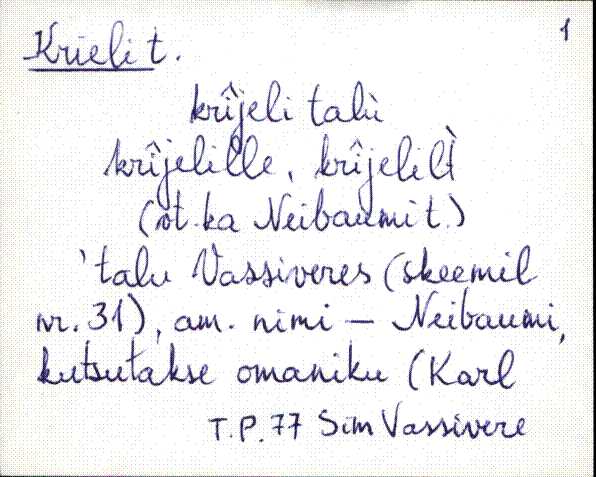 Krieli t. 1
krîjeli talù
krîjelille, krîjelilt̀
(vt. ka Neibaumi t.)
'talu Vassiveres (skeemil
nr. 31), am. nimi – Neibaumi,
kutsutakse omaniku (Karl
T.P. 77 Sim Vassivere